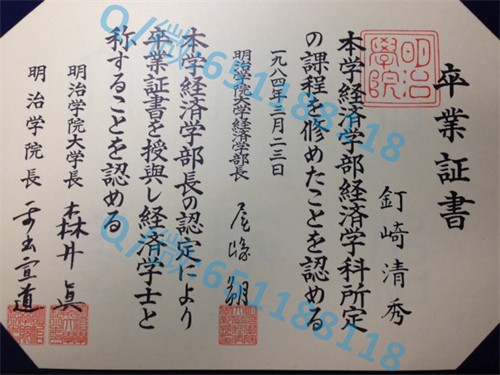 卒業証書
明治
學院
釘崎清秀
本学経済学部経済学科所定
の課程を修めたことを認める
一九八四年三月二三日
明治学院大学経済学部長
本学経済学部長の認定により
卒業証書を授與し経済学士と
称することを認める
明治学院大学長 森井眞
明治学院長 平出宣道
Q/微:651188118
Q/微:651188118